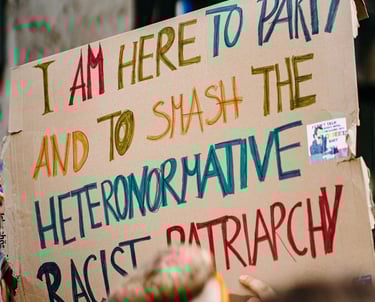 I AM HERE TO PARTY
AND TO SMASH THE
HETERONORMATIVE
RACIST PATRIARCHY